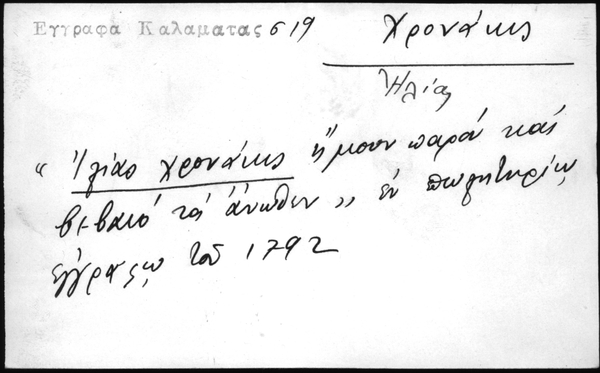 Εγγραφα Καλαματας 619
Χρονάκης
Ἠλίας
" Ἠλίας Χρονάκης ἤμουν παρόν καί
βεβαιό τά ἄνωθεν ,, ἐν πωλητηρίῳ
ἐγγράφῳ τοῦ 1792